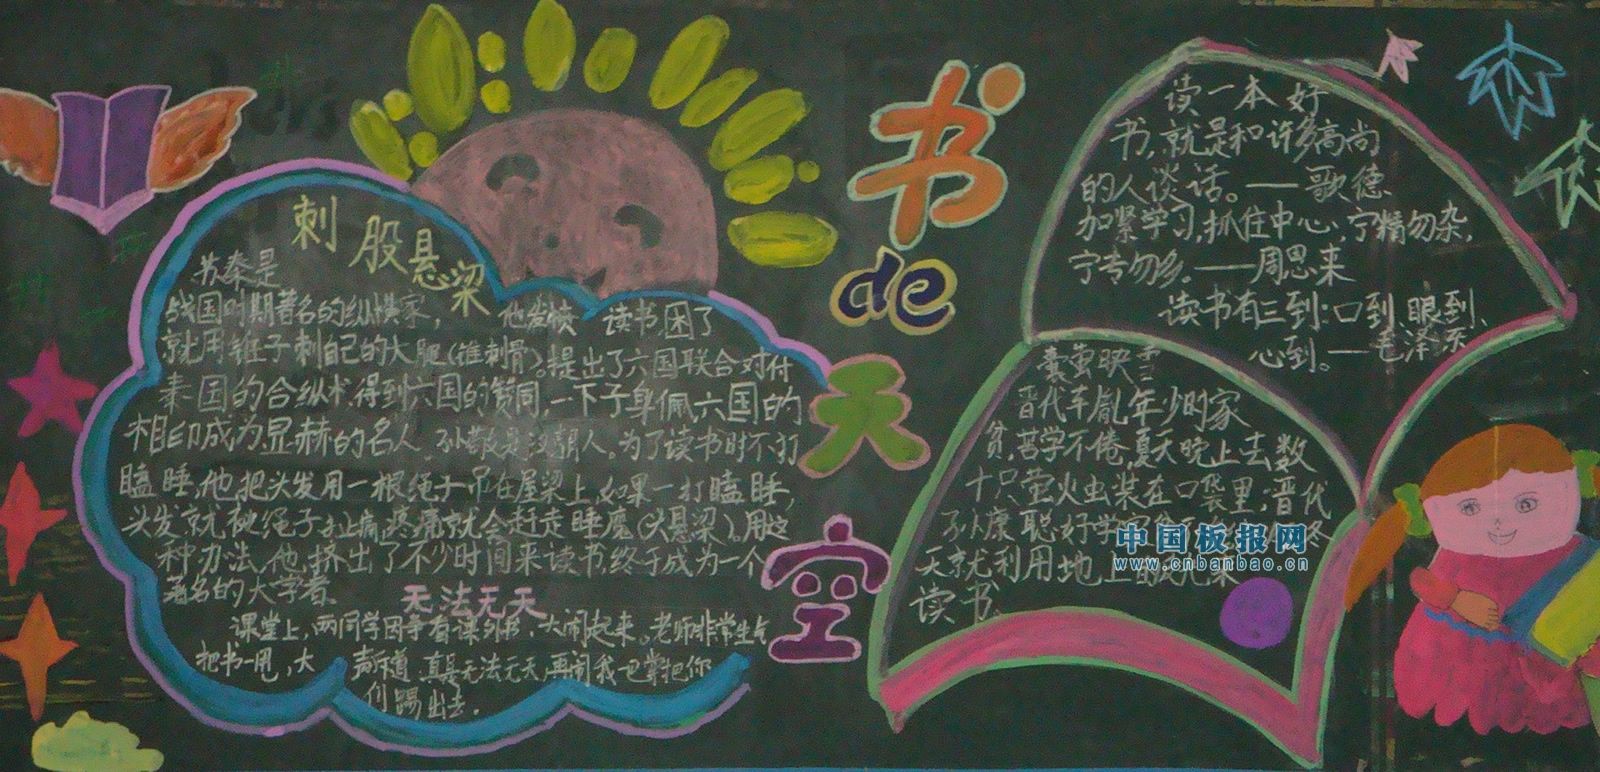 刺股悬梁
苏秦是
战国时期著名的纵横家, 他发愤 读书,困了
就用锥子刺自己的大腿(锥刺骨)。提出了六国联合对付
秦国的合纵术,得到六国的赞同,一下子身佩六国的
相印成为显赫的名人。孙敬是汉朝人。为了读书时不打
瞌睡,他把头发用一根绳子吊在屋梁上,如果一打瞌睡,
头发就被绳子扯痛,疼痛就会赶走睡魔(头悬梁)。用这
种办法,他挤出了不少时间来读书,终于成为一个
著名的大学者。
无法无天
课堂上,两同学因争看课外书,大闹起来。老师非常生气
把书一甩,大 声斥道:真是无法无天,再闹我也掌把你
们踢出去。
书
de
天
空
读一本好
书,就是和许多高尚
的人谈话。—歌德
加紧学习,抓住中心,宁精勿杂,
宁专勿多。——周恩来
读书有三到:口到、眼到、
心到。—毛泽东
囊萤映雪
晋代车胤年少时家
贫,苦学不倦,夏天晚上去数
十只萤火虫装在口袋里;晋代
孙康聪好学 冬
天就利用地上
读书。
中国板报网
www.cnbanbao.cn